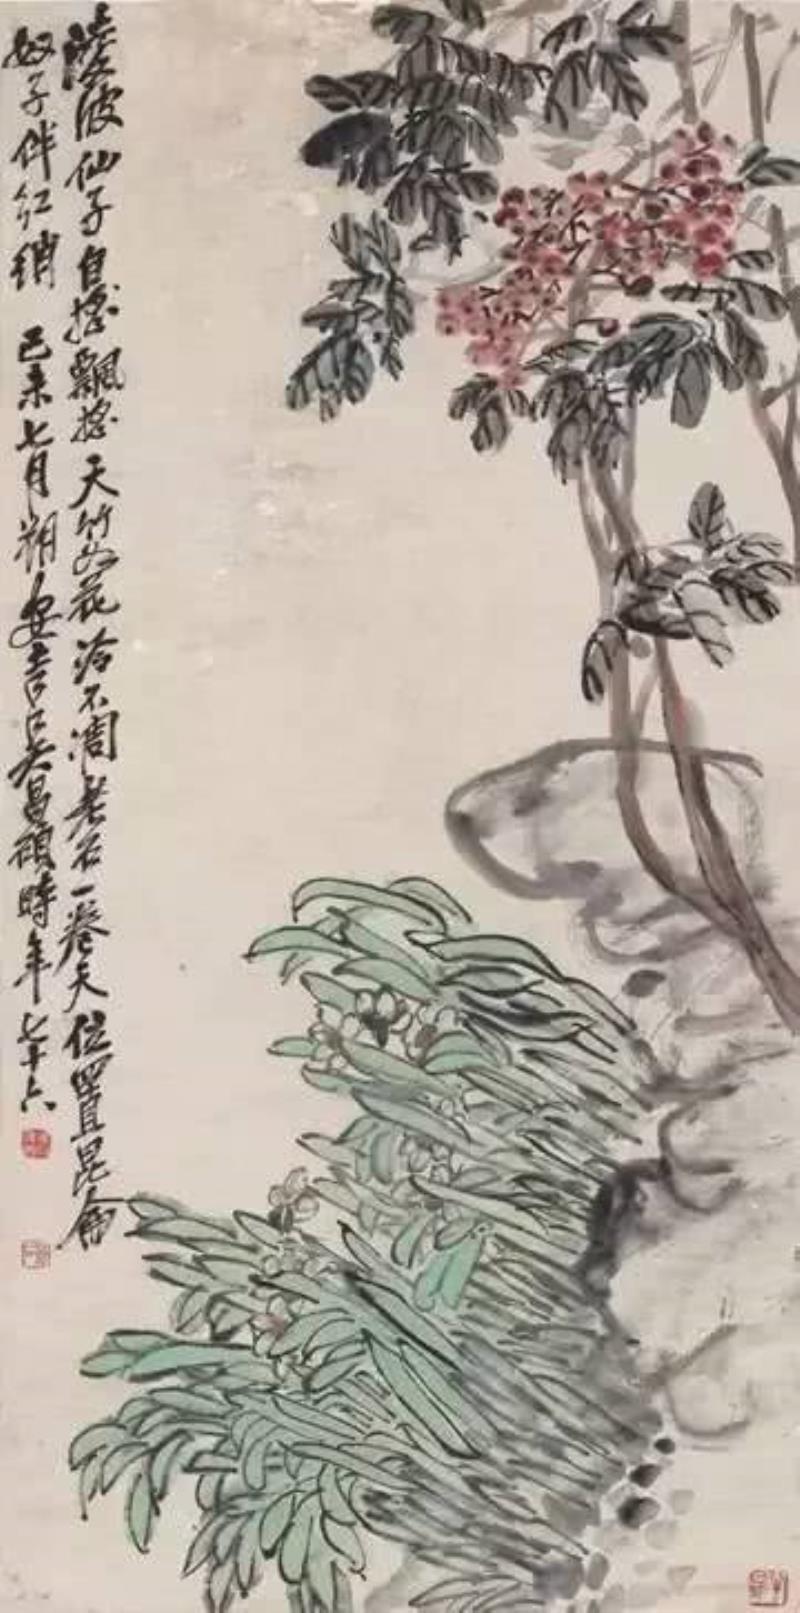 陵波仙子自搖飄搖天竹如花冷不凋老石一卷天位置昆侖
奴子伴紅綃 己未七月朔安吉吳昌碩時年七十六